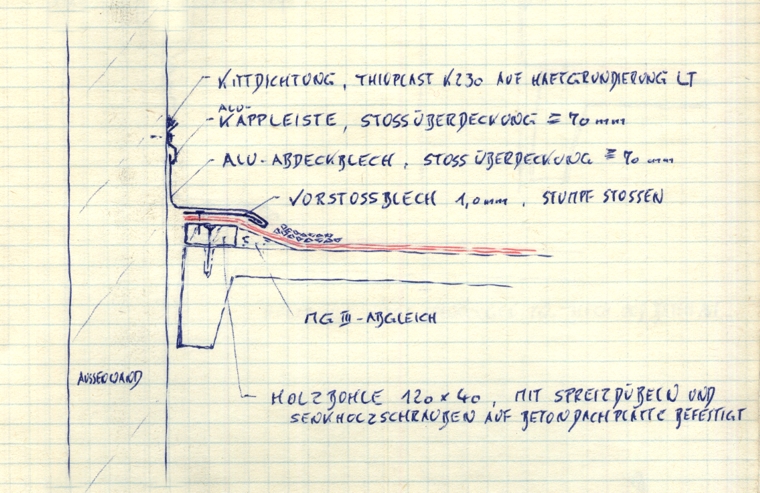 KITTDICHTUNG, THIOPLAST K230 AUF HAFTGRUNDIERUNG LT
ALU-
KAPPLEISTE, STOSSÜBERDECKUNG ≧ 70 mm
ALU-ABDECKBLECH, STOSSÜBERDECKUNG ≧ 70 mm
VORSTOSSBLECH 1,0 mm, STUMPF STOSSEN
MG III-ABGLEICH
AUSSENWAND
HOLZBOHLE 120 x 40, MIT SPREIZDÜBELN UND
SENKHOLZSCHRAUBEN AUF BETONDACHPLATTE BEFESTIGT